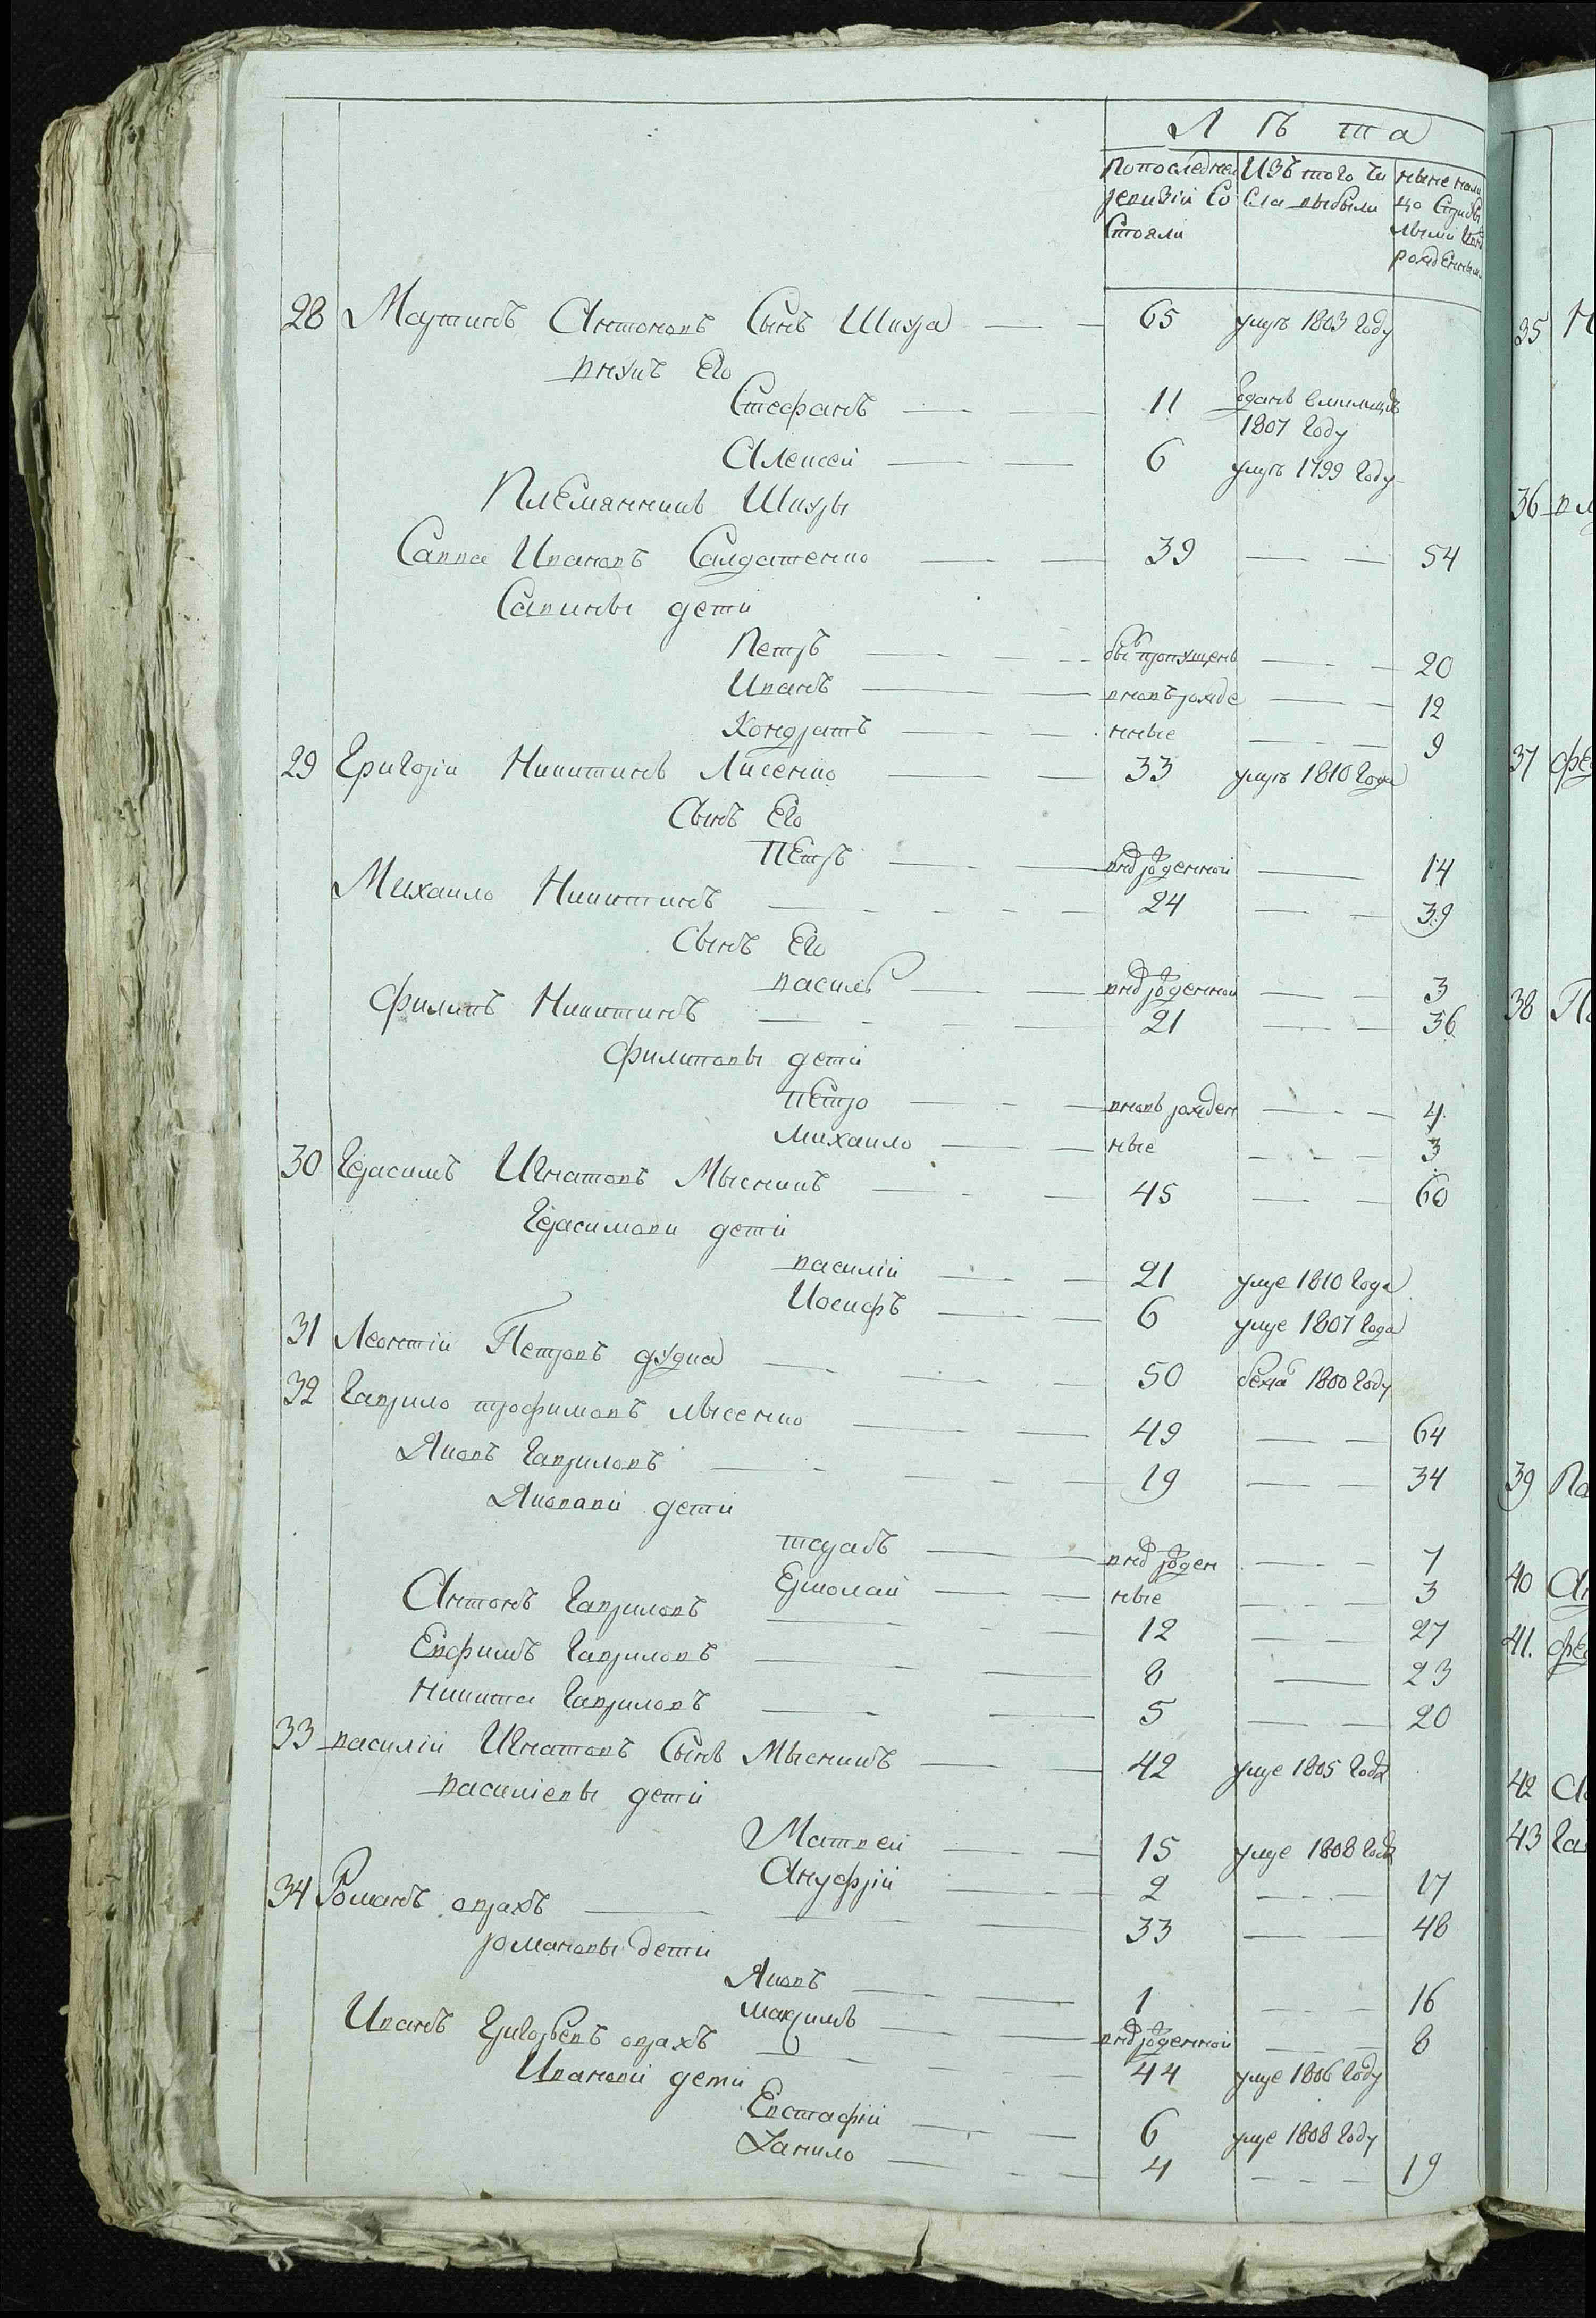 Лѣта
По последней Изъ того чи ныне нали
ревизіи Со сла выбыли цо Сприбы
стояли лыми и вно
рожденными
28 Мартинъ Антоновъ Сынъ Шкура 65 умръ 1803 году
внукъ Его
Стефанъ 11 зданъ в милицію
1807 году
Алексей 6 умръ 1799 году
Племянникъ Шкуры
Савва Ивановъ Салдатенко 39 54
Савины дети
Петръ былъ пропущенъ 20
Иванъ вновърожде 12
Кондратъ нные 9
29 Григорій Никитинъ Лисенко 33 умръ 1810 года
Сынъ Его
Петръ вно рожденной 14
Михайло Никитинъ 24 39
Сынъ Его
василь вно рожденной 3
Филипъ Никитинъ 21 36
Филиповы дети
Петро вновь рожден 4
Михайло ные 3
30 Герасимъ Игнатовъ Мысникъ 45 60
Герасимови дети
василій 21 умре 1810 года
Иосифъ 6 умре 1807 года
31 Леонтій Петровъ дудка 50 бежа 1800 году
32 Гаврило трофимовъ лысенко 49 64
Яковъ Гавриловъ 19 34
Яковови дети
вно рожден 7
Ермолай ные 3
Антонъ Гавриловъ 12 27
Евфимъ Гавриловъ 8 23
Никита Гавриловъ 5 20
33 василій Игнатовъ Сынъ Мысникъ 42 умре 1805 года
василіевы дети
Матвей 15 умре 1808 года
Ануфрій 2 17
34 Романъ оврахъ 33 48
романовы дети
Яковъ 1 16
макримъ вно рожденной 8
Иванъ Григорьевъ оврахъ 44 умре 1806 году
Иванови дети
Евстафій 6 умре 1808 году
Данило 4 19
35 Н
36 вл
37 фе
38 П
39 Па
40 Ан
41. фе
42 Ав
43 Гав